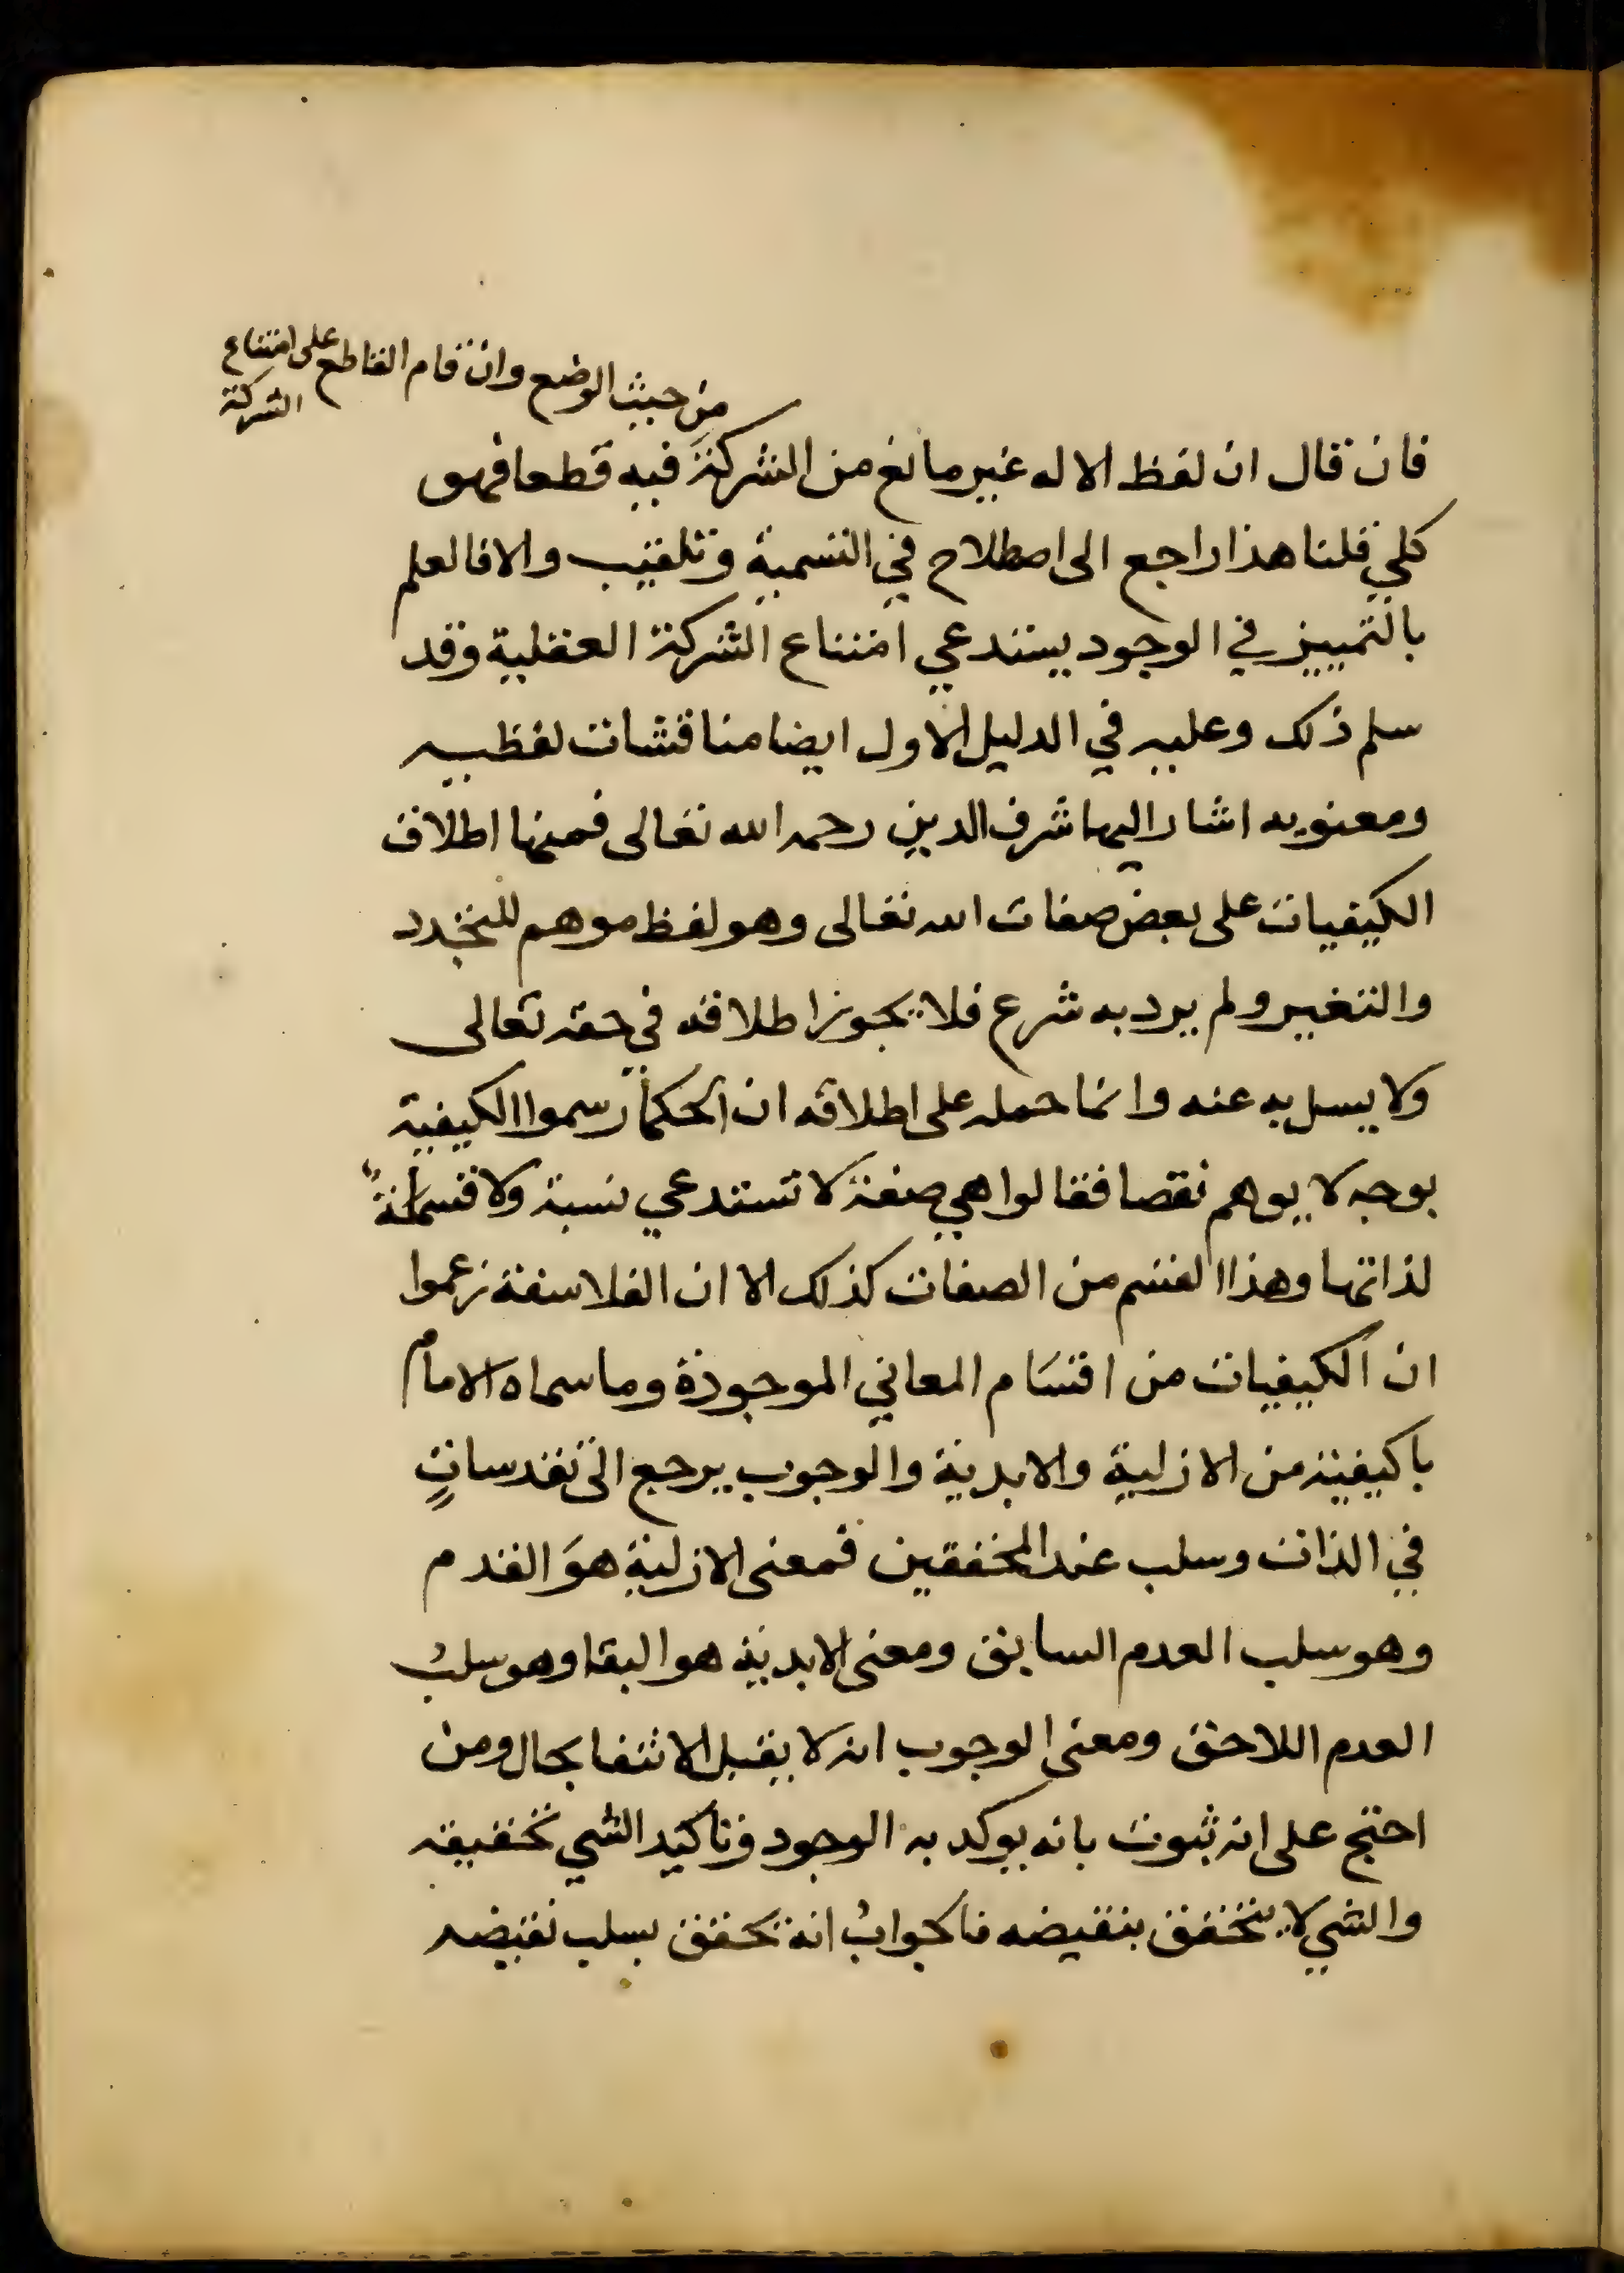 من حيث الوضع وان قام القاطع على امتناع
الشركة
فان قال ان لفظ الاله غير مانع من الشركة فيه قطعا فهو
كلي قلنا هذا راجع الى اصطلاح في التسمية وتلقيب والا فالعلم
بالتمييز في الوجود يستدعي امتناع الشركة العقلية وقد
سلم ذلك وعليه في الدليل الاول ايضا مناقشات لفظيه
ومعنويه اشار اليها شرف الدين رحمه الله تعالى فمنها اطلاق
الكيفيات على بعض صفات الله تعالى وهو لفظ موهم للتجدد
والتغيير ولم يرد به شرع فلا يجوز اطلاقه في حقه تعالى
ولا يسل به عنه وانما حمله على اطلاقه ان الحكما رسموا الكيفية
بوجه لا يوهم نقصا فقالوا هي صفة لا تستدعي نسبة ولا قسمة
لذاتها وهذا القسم من الصفات كذلك الا ان الفلاسفة زعموا
ان الكيفيات من اقسام المعاني الموجودة وما سماه الامام
باكيفية من الازلية والابدية والوجوب يرجع الى تقدسات
في الذات وسلب عند المحققين فمعنى الازلية هو القدم
وهو سلب العدم السابق ومعنى الابدية هو البقا وهو سلب
العدم اللاحق ومعنى الوجوب انه لا يقبل الانتفا بحال ومن
احتج على انه ثبوت بانه يوكد به الوجود وتاكيد الشي تحقيقه
والشي لا يتحقق بنقيضه فالجواب انه تحقق بسلب نقيضه